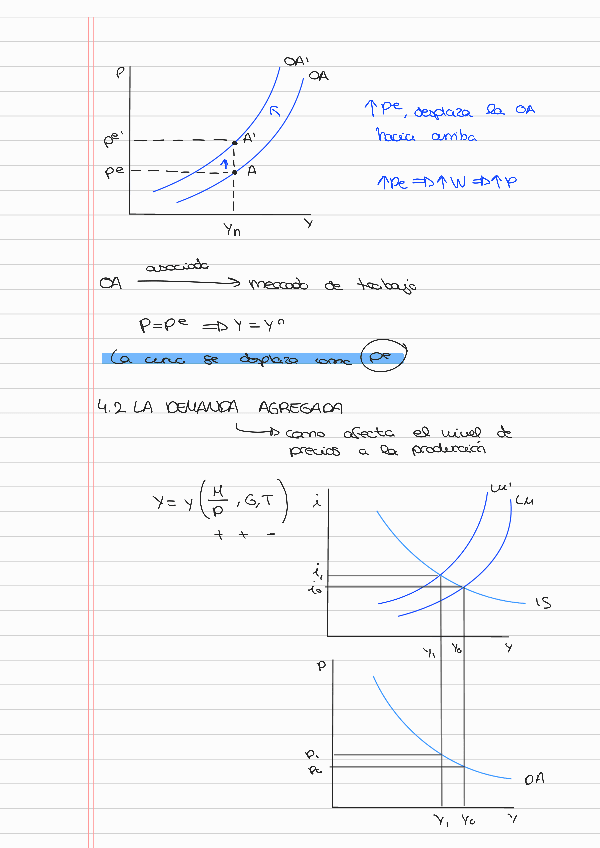 P
OA'
OA
↑ pe, desplaza la OA
hacia arriba
pe'
A'
pe
A
↑pe ⇒ ↑W ⇒ ↑P
Yn
Y
asociada
OA → mercado de trabajo
P=Pe ⇒ Y=Yn
La curva se desplaza como pe
4.2 LA DEMANDA AGREGADA
↳ como afecta el nivel de
precios a la producción
Y = Y (M/P, G, T)
+ + -
i
LM'
LM
i1
i0
IS
Y1
Y0
Y
P
P1
P0
DA
Y1
Y0
Y